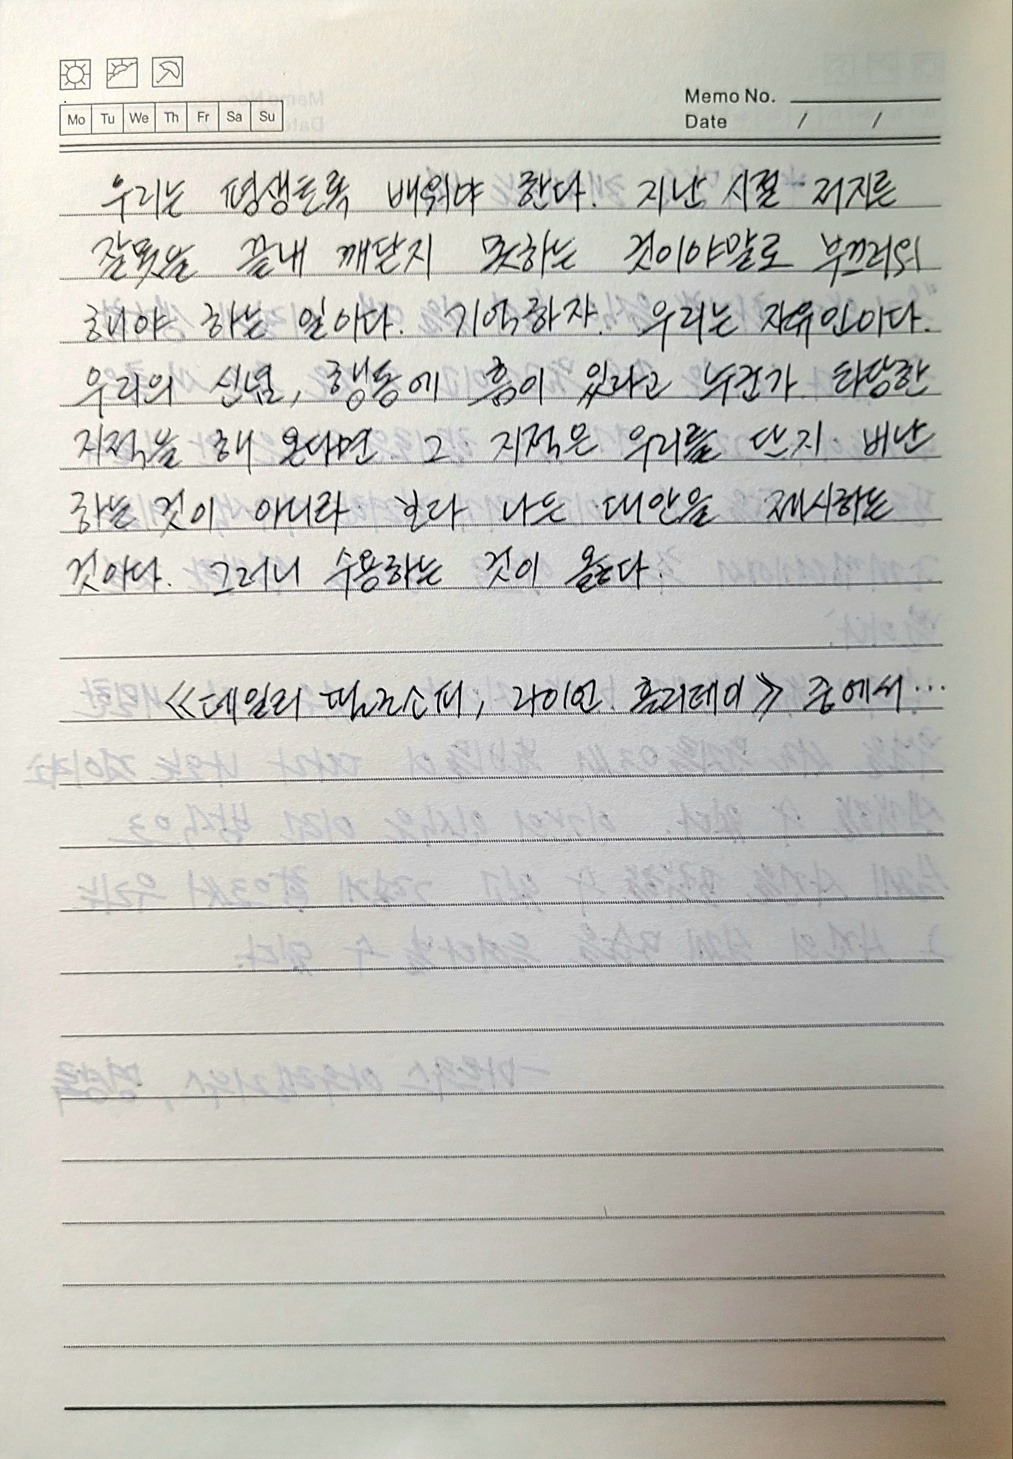 Mo Tu We Th Fr Sa Su
Memo No.
Date / /
우리는 평생토록 배워야 한다. 지난 시절 저지른
잘못을 끝내 깨닫지 못하는 것이야말로 부끄러워
해야 하는 일이다. 기억하자. 우리는 자유인이다.
우리의 신념, 행동에 흠이 있다고 누군가 타당한
지적을 해 온다면 그 지적은 우리를 단지 비난
하는 것이 아니라 보다 나은 대안을 제시하는
것이다. 그러니 수용하는 것이 옳다.
≪데일리 필로소피, 라이언 홀리데이≫ 중에서…